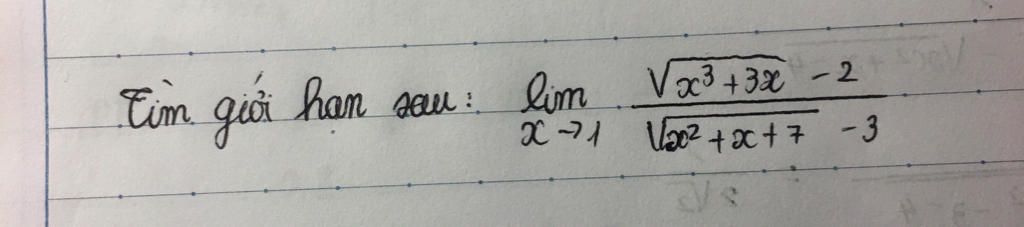 Tìm giới hạn sau: lim x→1 (√(x³+3x) - 2)/(√(x²+x+7) - 3)